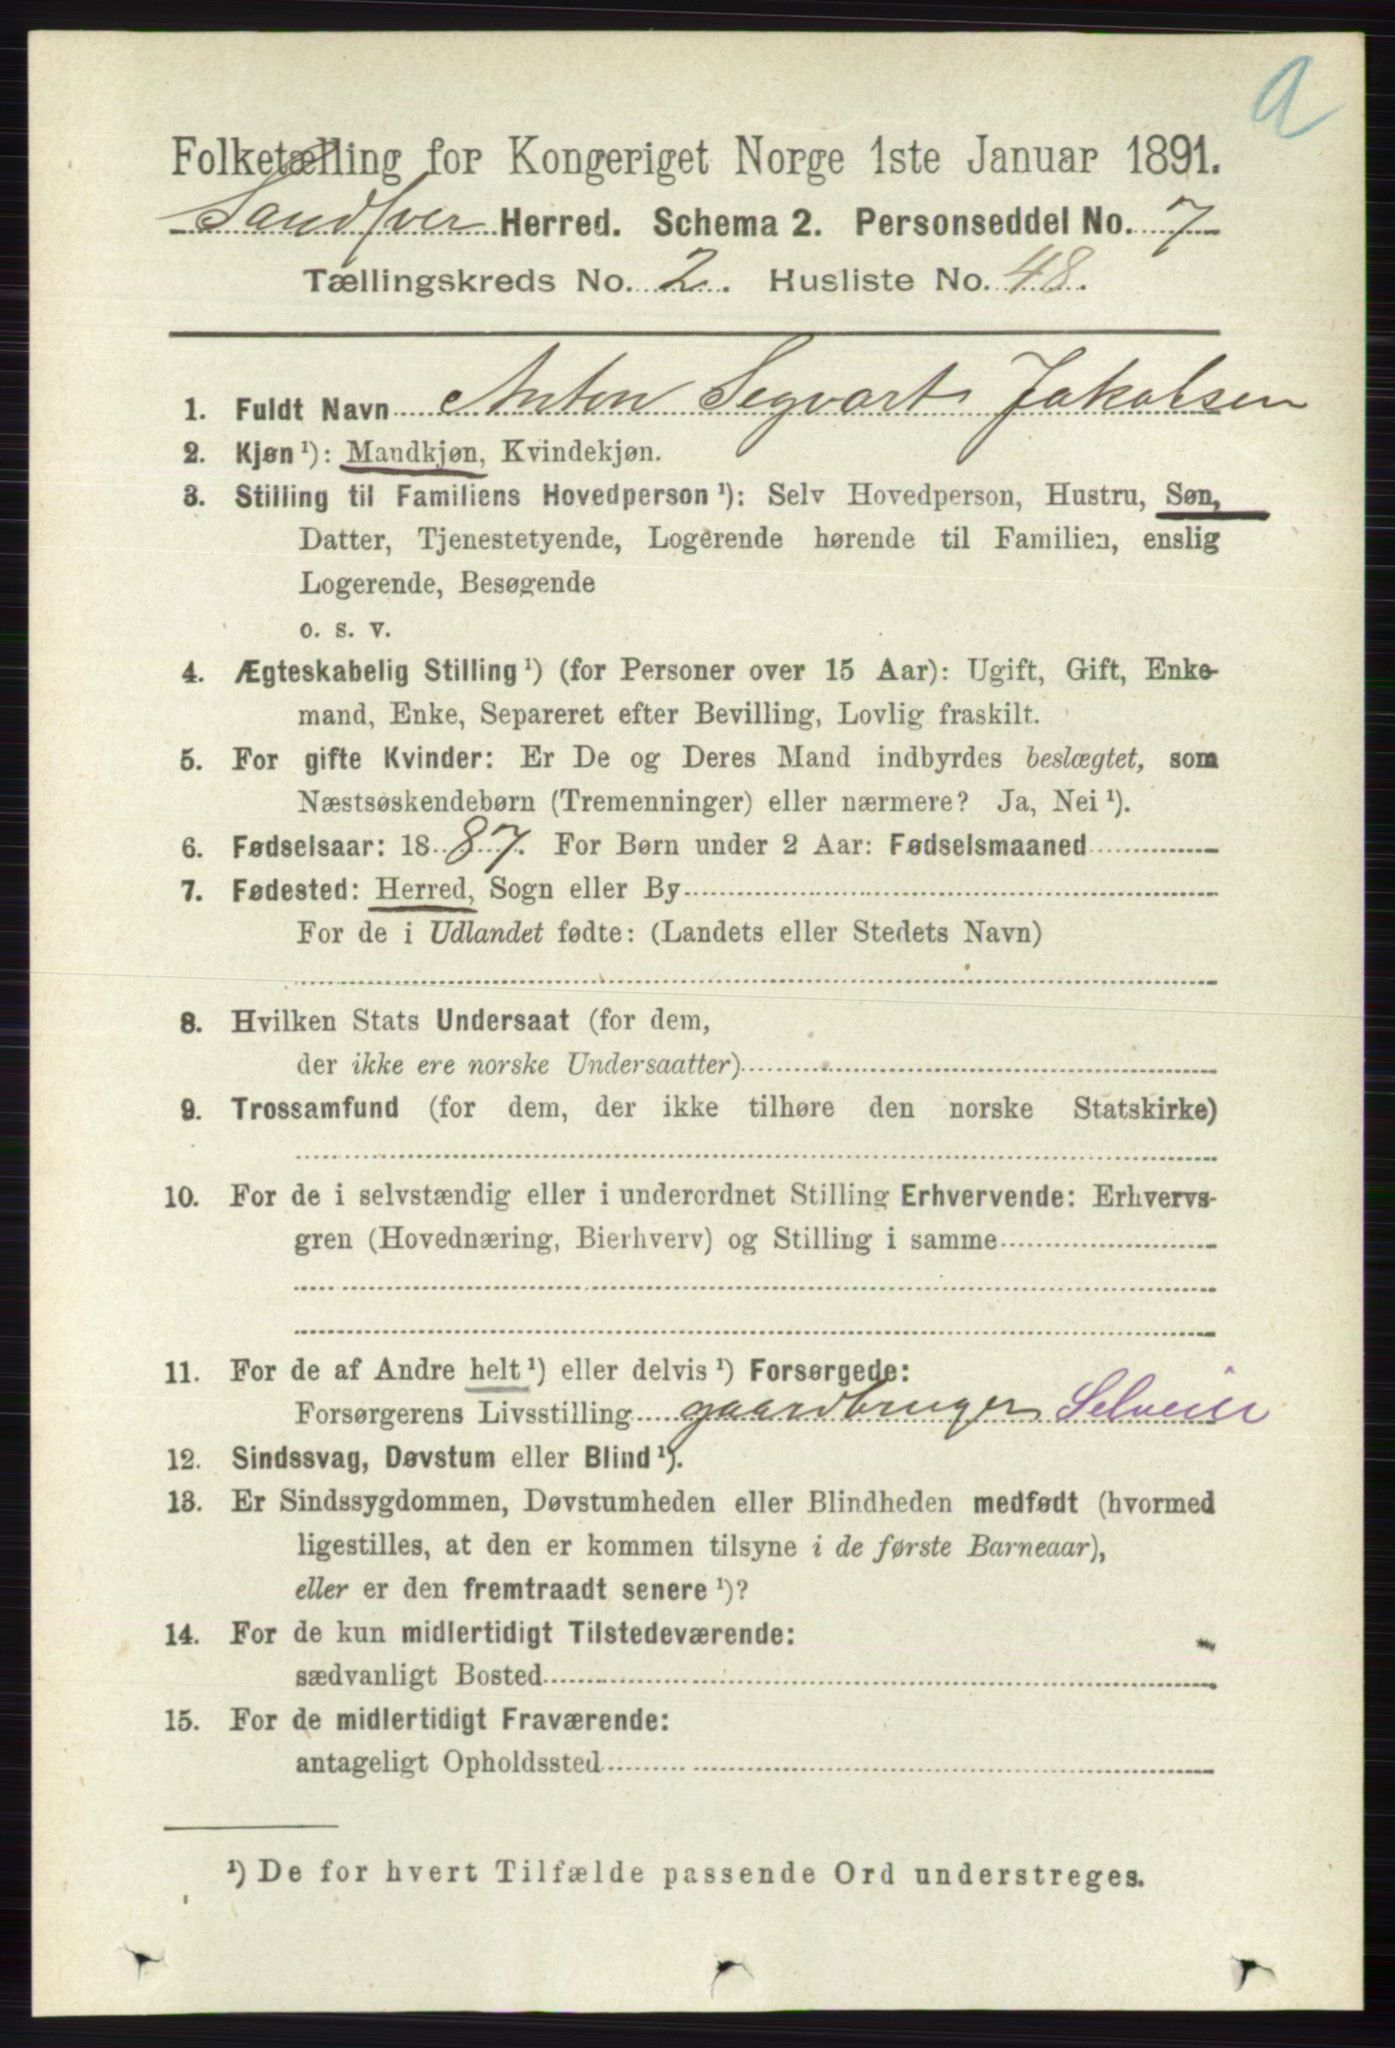 a
Folketælling for Kongeriget Norge 1ste Januar 1891.
Sandsver Herred. Schema 2. Personseddel No. 7
Tællingskreds No. 2. Husliste No. 48.
1. Fuldt Navn Anton Segvart Jakobsen
2. Kjøn ¹): Mandkjøn, Kvindekjøn.
3. Stilling til Familiens Hovedperson ¹): Selv Hovedperson, Hustru, Søn,
Datter, Tjenestetyende, Logerende hørende til Familien, enslig
Logerende, Besøgende
o. s. v.
4. Ægteskabelig Stilling ¹) (for Personer over 15 Aar): Ugift, Gift, Enke-
mand, Enke, Separeret efter Bevilling, Lovlig fraskilt.
5. For gifte Kvinder: Er De og Deres Mand indbyrdes beslægtet, som
Næstsøskendebørn (Tremenninger) eller nærmere? Ja, Nei ¹).
6. Fødselsaar: 1887. For Børn under 2 Aar: Fødselsmaaned
7. Fødested: Herred, Sogn eller By
For de i Udlandet fødte: (Landets eller Stedets Navn)
8. Hvilken Stats Undersaat (for dem,
der ikke ere norske Undersaatter)
9. Trossamfund (for dem, der ikke tilhøre den norske Statskirke)
10. For de i selvstændig eller i underordnet Stilling Erhvervende: Erhvervs-
gren (Hovednæring, Bierhverv) og Stilling i samme
11. For de af Andre helt ¹) eller delvis ¹) Forsørgede:
Forsørgerens Livsstilling gaardbruger Selveier
12. Sindssvag, Døvstum eller Blind ¹).
13. Er Sindssygdommen, Døvstumheden eller Blindheden medfødt (hvormed
ligestilles, at den er kommen tilsyne i de første Barneaar),
eller er den fremtraadt senere ¹)?
14. For de kun midlertidigt Tilstedeværende:
sædvanligt Bosted
15. For de midlertidigt Fraværende:
antageligt Opholdssted
¹) De for hvert Tilfælde passende Ord understreges.